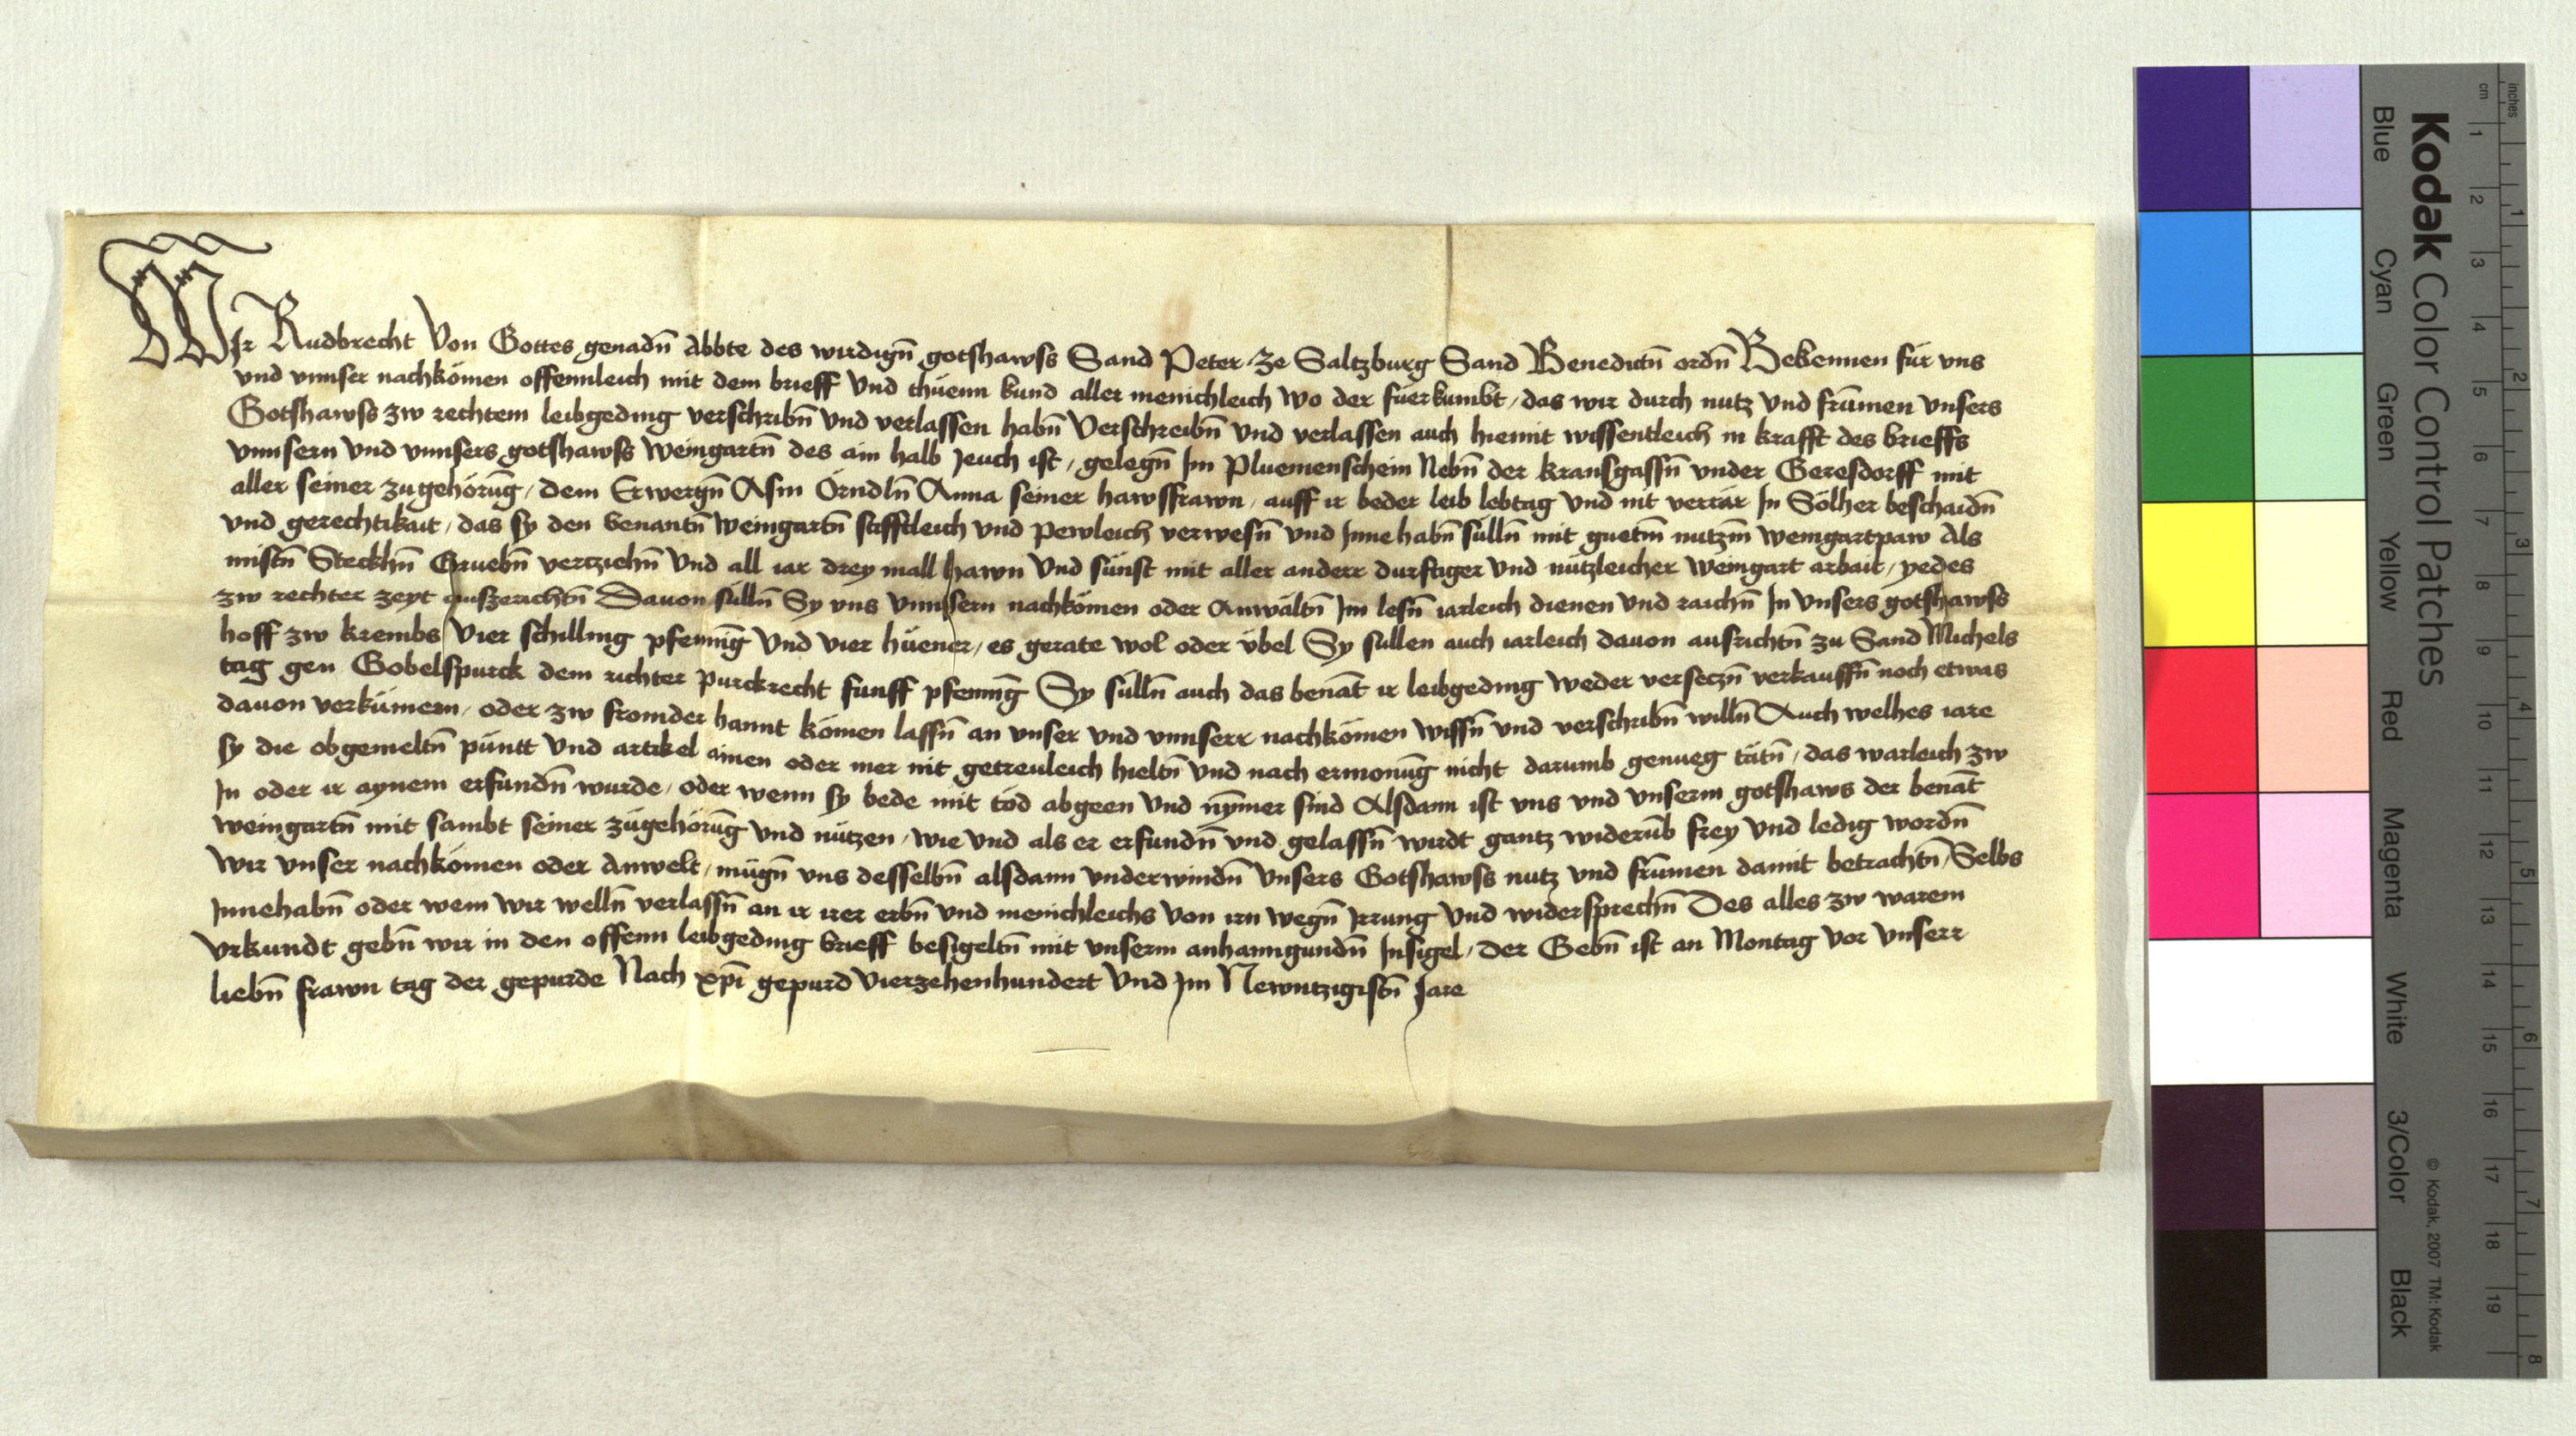 Wir Rudbrecht Von Gottes genadn̄ Abbte des wirdign̄ gotshawss Sand Peter ze Saltzburg Sand Benedictn̄ ordn̄ Bekennen für vns
vnd vnnser nachkömen offennleich mit dem brieff Vnd thüenn kund aller menichleich Wo der füerkumbt / das wir durch nutz Vnd frūmen Vnsers
Gotshawss zw rechtem leibgeding verschribn̄ Vnd verlassen habn̄ Verschreibn̄ Vnd verlassen auch hiemit wissentleich in krafft des brieffs
vnnsern Vnd vnnsers gotshawss Weingartn̄ des ain halb Jeuch ist / gelegn̄ Im Pluemenschein Nebn̄ der kransgassn̄ vnder Geresdorff mit
aller seiner zugehörūg / dem Erwergn̄ Asm Örndln̄ Anna seiner hawsfrawn / auff ir beder leib lebtag Vnd nit verrär In Sölher beschaidn̄
Vnd gerechtikait / das sy den benantn̄ Weingartn̄ stifftleich Vnd Pewleich verwesn̄ Vnd Innehabn̄ sülln̄ mit guetm̄ nutzm̄ Weingartpaw Als
mistn̄ Steckhn̄ Gruebn̄ vertziehn̄ Vnd all iar drey mall hawn Vnd sünst mit aller anderr durftiger Vnd nützleicher Weingart arbait / yedes
zw rechter zeyt ausszerichtn̄ Dauon sülln̄ Sy vns Vnnsern nachkömen oder Anwältn̄ Im lesn̄ iarleich dienen Vnd raichn̄ In Vnsers gotshawss
hoff zw krembs Vier schilling pfennīg Vnd vier hüener / es gerate wol oder übel Sy sullen auch iarleich dauon ausrichtn̄ zu Sand Michels
tag gen Gobelspurck dem richter Purckrecht funff pfennīg Sy sülln̄ auch das benāt ir leibgeding Weder verseczn̄ verkauffn̄ noch etwas
dauon verkümern / oder zw fromder hannt kömen lassn̄ an vnser Vnd vnnserr nachkömen Wissn̄ Vnd verschribn̄ willn̄ Auch welhes iare
sy die obgemeltn̄ püntt Vnd artikel ainen oder mer nit getreuleich hieltn̄ Vnd nach ermonūg nicht darumb genueg tätn̄ / das warleich zw
In oder ir aynem erfundn̄ wurde / oder wenn sy bede mit tod abgeen Vnd nȳmer sind Alsdann ist vns Vnd Vnserm gotshaws der benāt
Weingartn̄ mit sambt seiner zügehörūg Vnd nützen / wie Vnd als er erfundn̄ Vnd gelassn̄ wirdt gantz widerūb frey Vnd ledig wordn̄
Wir Vnser nachkömen oder Anwelt / mügn̄ vns desselbn̄ alsdann Vnderwindn̄ Vnsers Gotshawss nutz Vnd frūmen damit betrachtn̄ / Selbs
Innehabn̄ oder wem wir welln̄ verlassn̄ an ir irer erbn̄ Vnd menichleichs Von irn wegn̄ Irrung Vnd widersprechn̄ Des alles zw warem
Vrkundt gebn̄ wir in den offenn leibgeding brieff besigeltn̄ mit Vnserm anhanngundn̄ Insigel / Der Gebn̄ ist an Montag vor Vnserr
liebn̄ frawn tag der gepurde Nach xpī gepurd Vierzehenhundert Vnd Im Newntzigistn̄ Jare
Kodak Color Control Patches
Blue Cyan Green Yellow Red Magenta White 3/Color Black
© Kodak, 2007 TM: Kodak
cm 1 2 3 4 5 6 7 8 9 10 11 12 13 14 15 16 17 18 19
inches 1 2 3 4 5 6 7 8